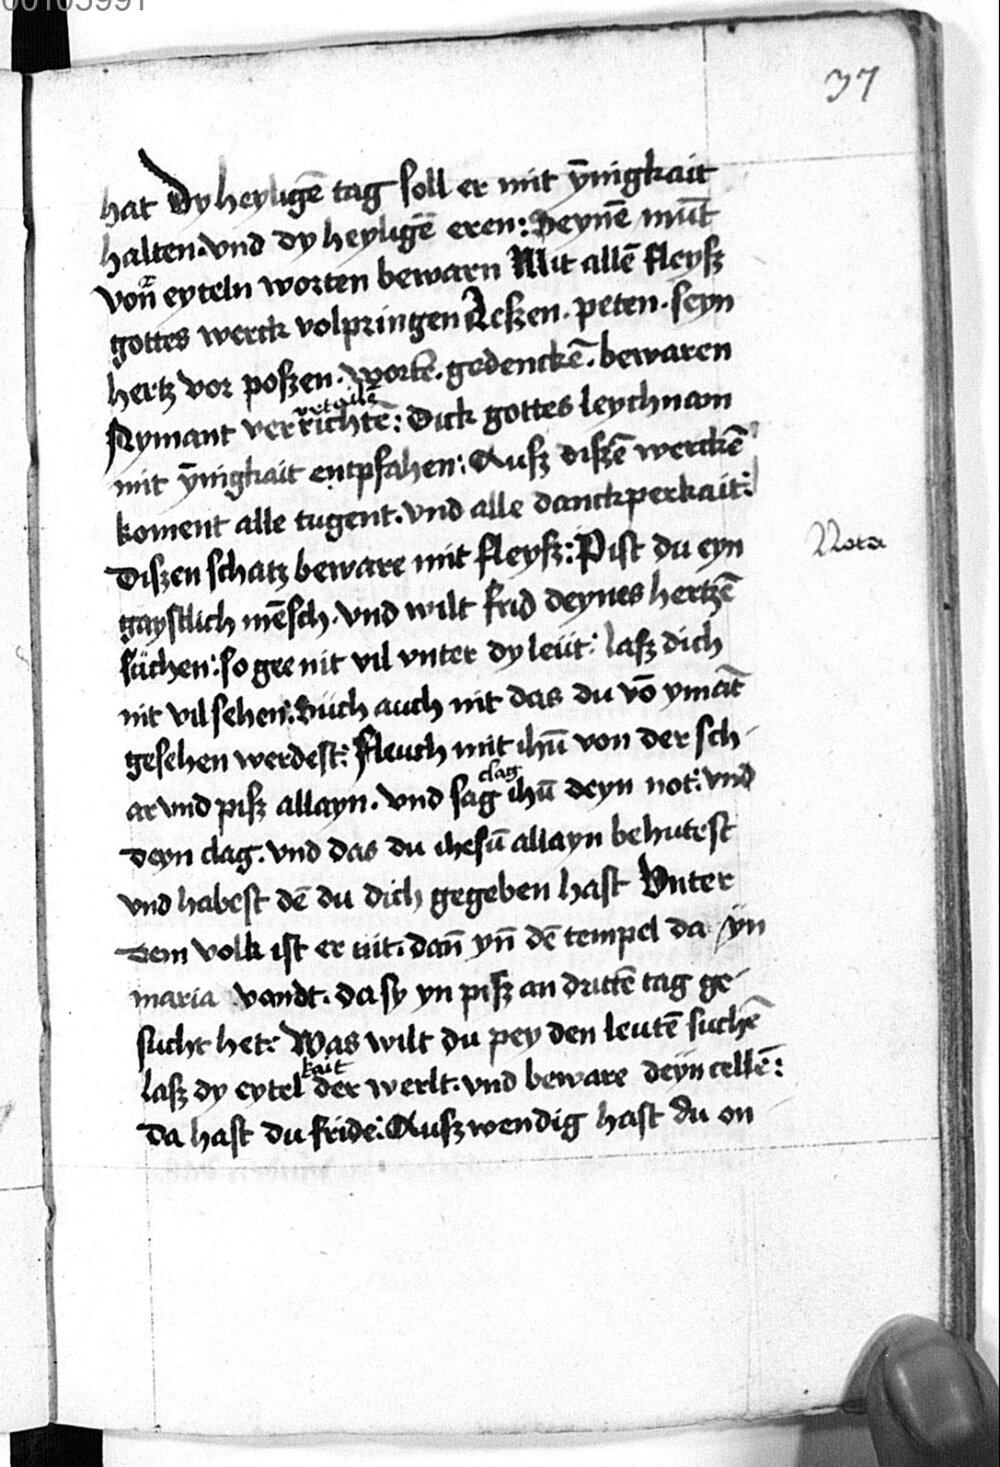 00105991
37
hat Dy heyligē tag soll er mit ȳnigkait
halten. vnd dy heyligē eren: Seynē mūt
von̄ eyteln worten bewarn Mit allē fleysz
gottes werck volpringen Acken. peten. seyn
hertz vor poszen. wortē. gedenckē. bewaren
vrtailē
Nymant verrichtē: Dick gottes leychnam
mit ȳnigkait entpfahen: Ausz diszē werckē
koment alle tugent. vnd alle danckperkait:
Diszen schatz beware mit fleysz: Pist du eyn
Nota
gaystlich mēsch. vnd wilt frid deynes hertzē
süchen: so gee nit vil vnter dy leüt: lasz dich
nit vil sehen: Süch auch nit das du vō ymāt
gesehen werdest: Fleuch mit ihū von der sch-
clag
ar vnd pisz allayn. vnd sag ihū deyn not: vnd
deyn clag. vnd das du ihesū allayn behutest
vnd habest dē du dich gegeben hast Vnter
dem volk ist er nit. dan̄ yn̄ dē tempel da yn
maria vandt. da sy yn pisz an drittē tag ge-
sucht het: Was wilt du pey den leutē suchē
kait
lasz dy eytel der werlt. vnd beware deyn cellē:
da hast du fride: Auszwendig hast du on